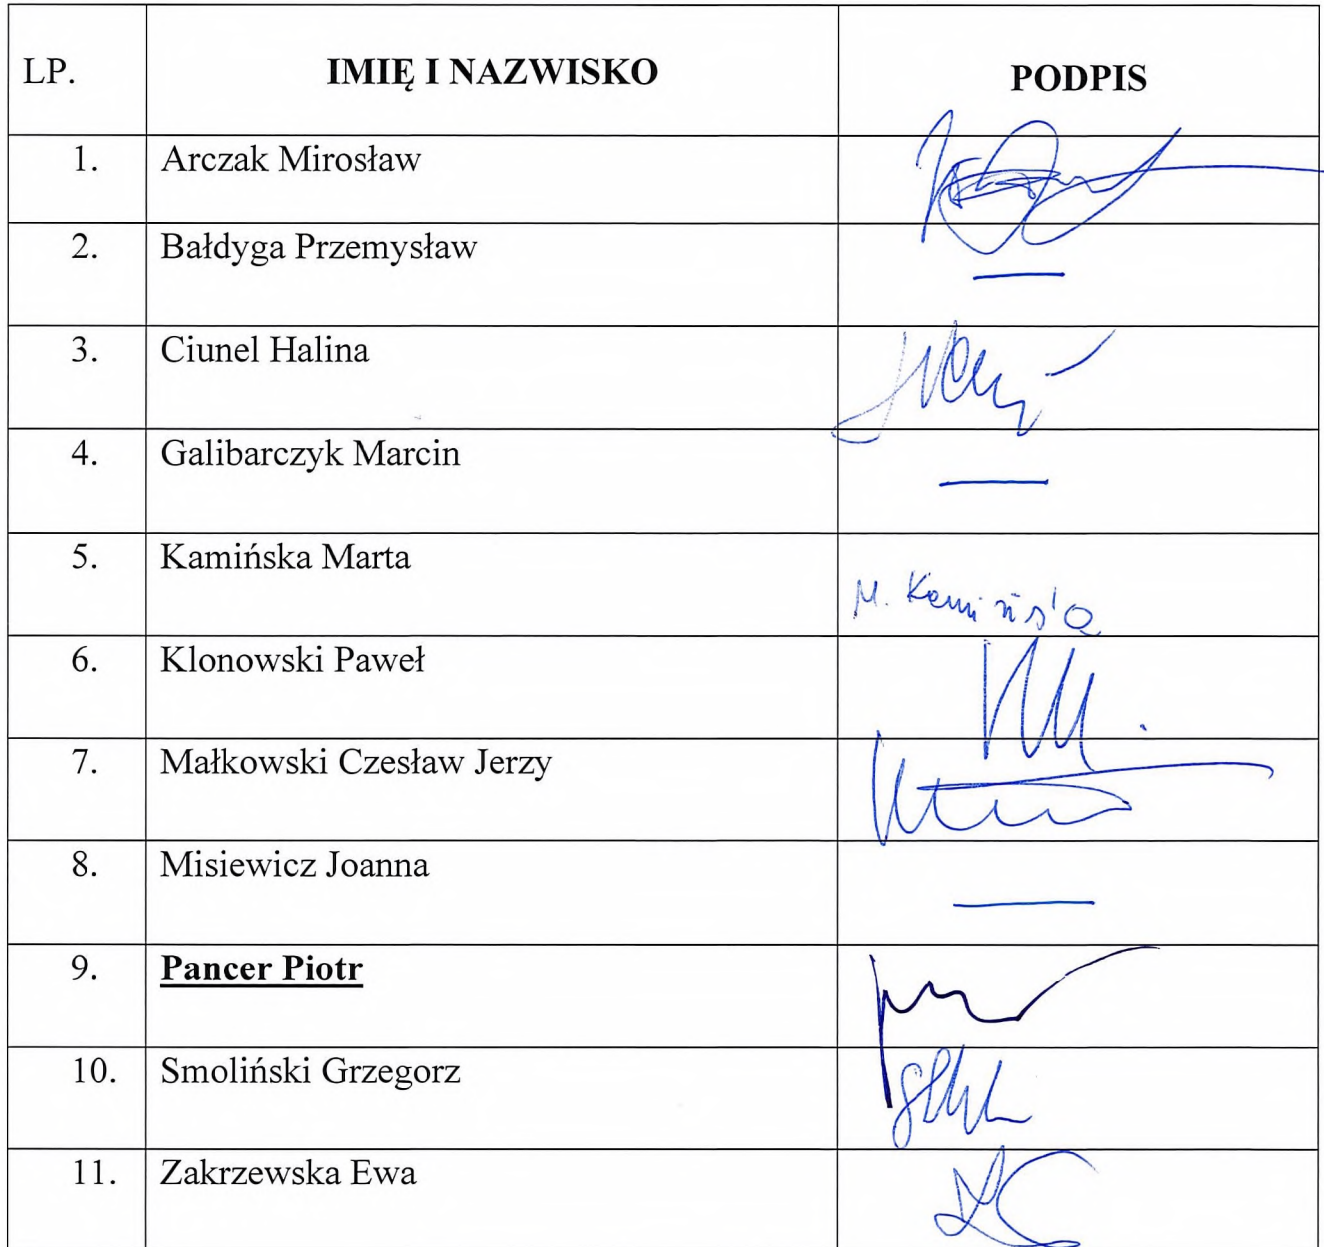 LP. IMIĘ I NAZWISKO PODPIS
1. Arczak Mirosław
2. Bałdyga Przemysław
3. Ciunel Halina
4. Galibarczyk Marcin
5. Kamińska Marta M. Kamińska
6. Klonowski Paweł
7. Małkowski Czesław Jerzy
8. Misiewicz Joanna
9. Pancer Piotr
10. Smoliński Grzegorz
11. Zakrzewska Ewa